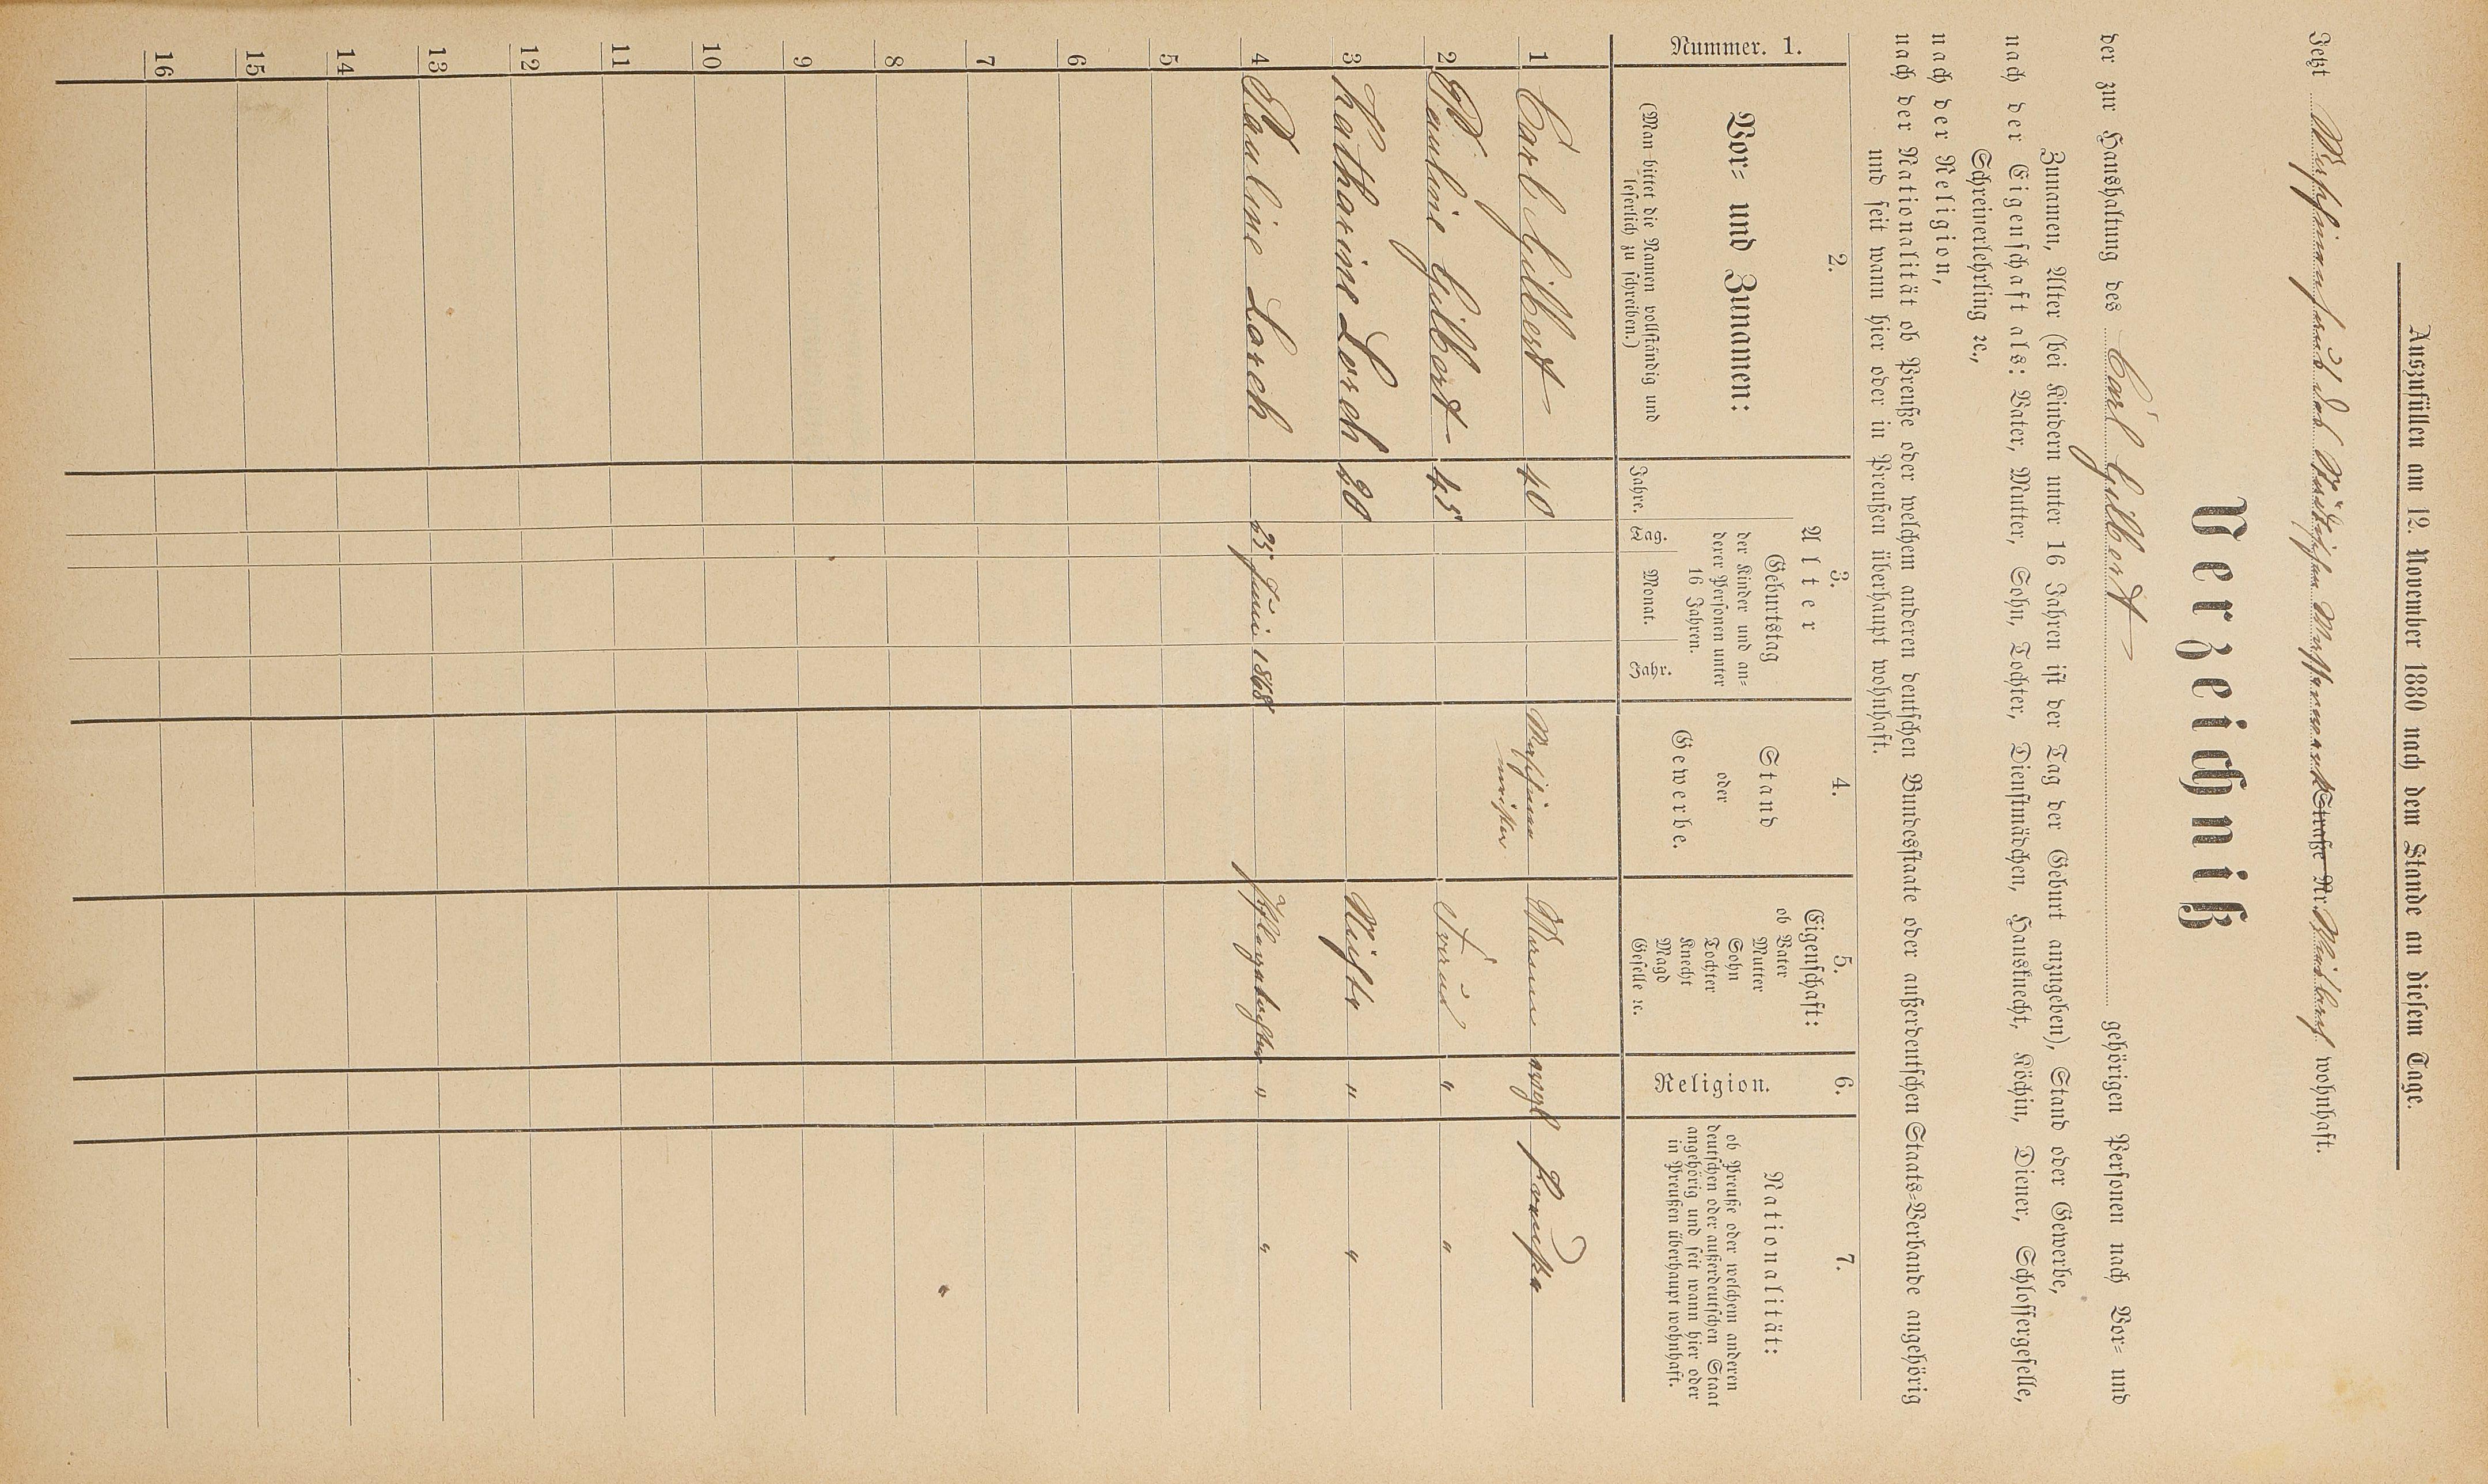 Auszufüllen am 12. November 1880 nach dem Stande an diesem Tage.
Jetzt Maschinenhaus des Städtischen Wasserwerk Straße Nr. Biebrich wohnhaft.
Verzeichniß
der zur Haushaltung des Carl Gilbert gehörigen Personen nach Vor- und
Zunamen, Alter (bei Kindern unter 16 Jahren ist der Tag der Geburt anzugeben), Stand oder Gewerbe,
nach der Eigenschaft als: Vater, Mutter, Sohn, Tochter, Dienstmädchen, Hausknecht, Köchin, Diener, Schlossergeselle,
Schreinerlehrling ꝛc.,
nach der Religion,
nach der Nationalität ob Preuße oder welchem anderen deutschen Bundesstaate oder außerdeutschen Staats-Verbande angehörig
und seit wann hier oder in Preußen überhaupt wohnhaft.
Nummer. 1.
2.
Vor- und Zunamen:
(Man bittet die Namen vollständig und
leserlich zu schreiben.)
3.
Alter
Jahre.
Geburtstag
der Kinder und an-
derer Personen unter
16 Jahren.
Tag. Monat. Jahr.
4.
Stand
oder
Gewerbe.
5.
Eigenschaft:
ob Vater
Mutter
Sohn
Tochter
Knecht
Magd
Geselle ꝛc.
6.
Religion.
7.
Nationalität:
ob Preuße oder welchem anderen
deutschen oder außerdeutschen Staat
angehörig und seit wann hier oder
in Preußen überhaupt wohnhaft.
1 Carl Gilbert 40 Maschinen Mann evgl Preuße
meister
2 Pauline Gilbert 45 Frau " "
3 Katharine Lorch 20 Nichte " "
4 Pauline Lorch 25 Juni 1868 Pflegetochter " "
5
6
7
8
9
10
11
12
13
14
15
16